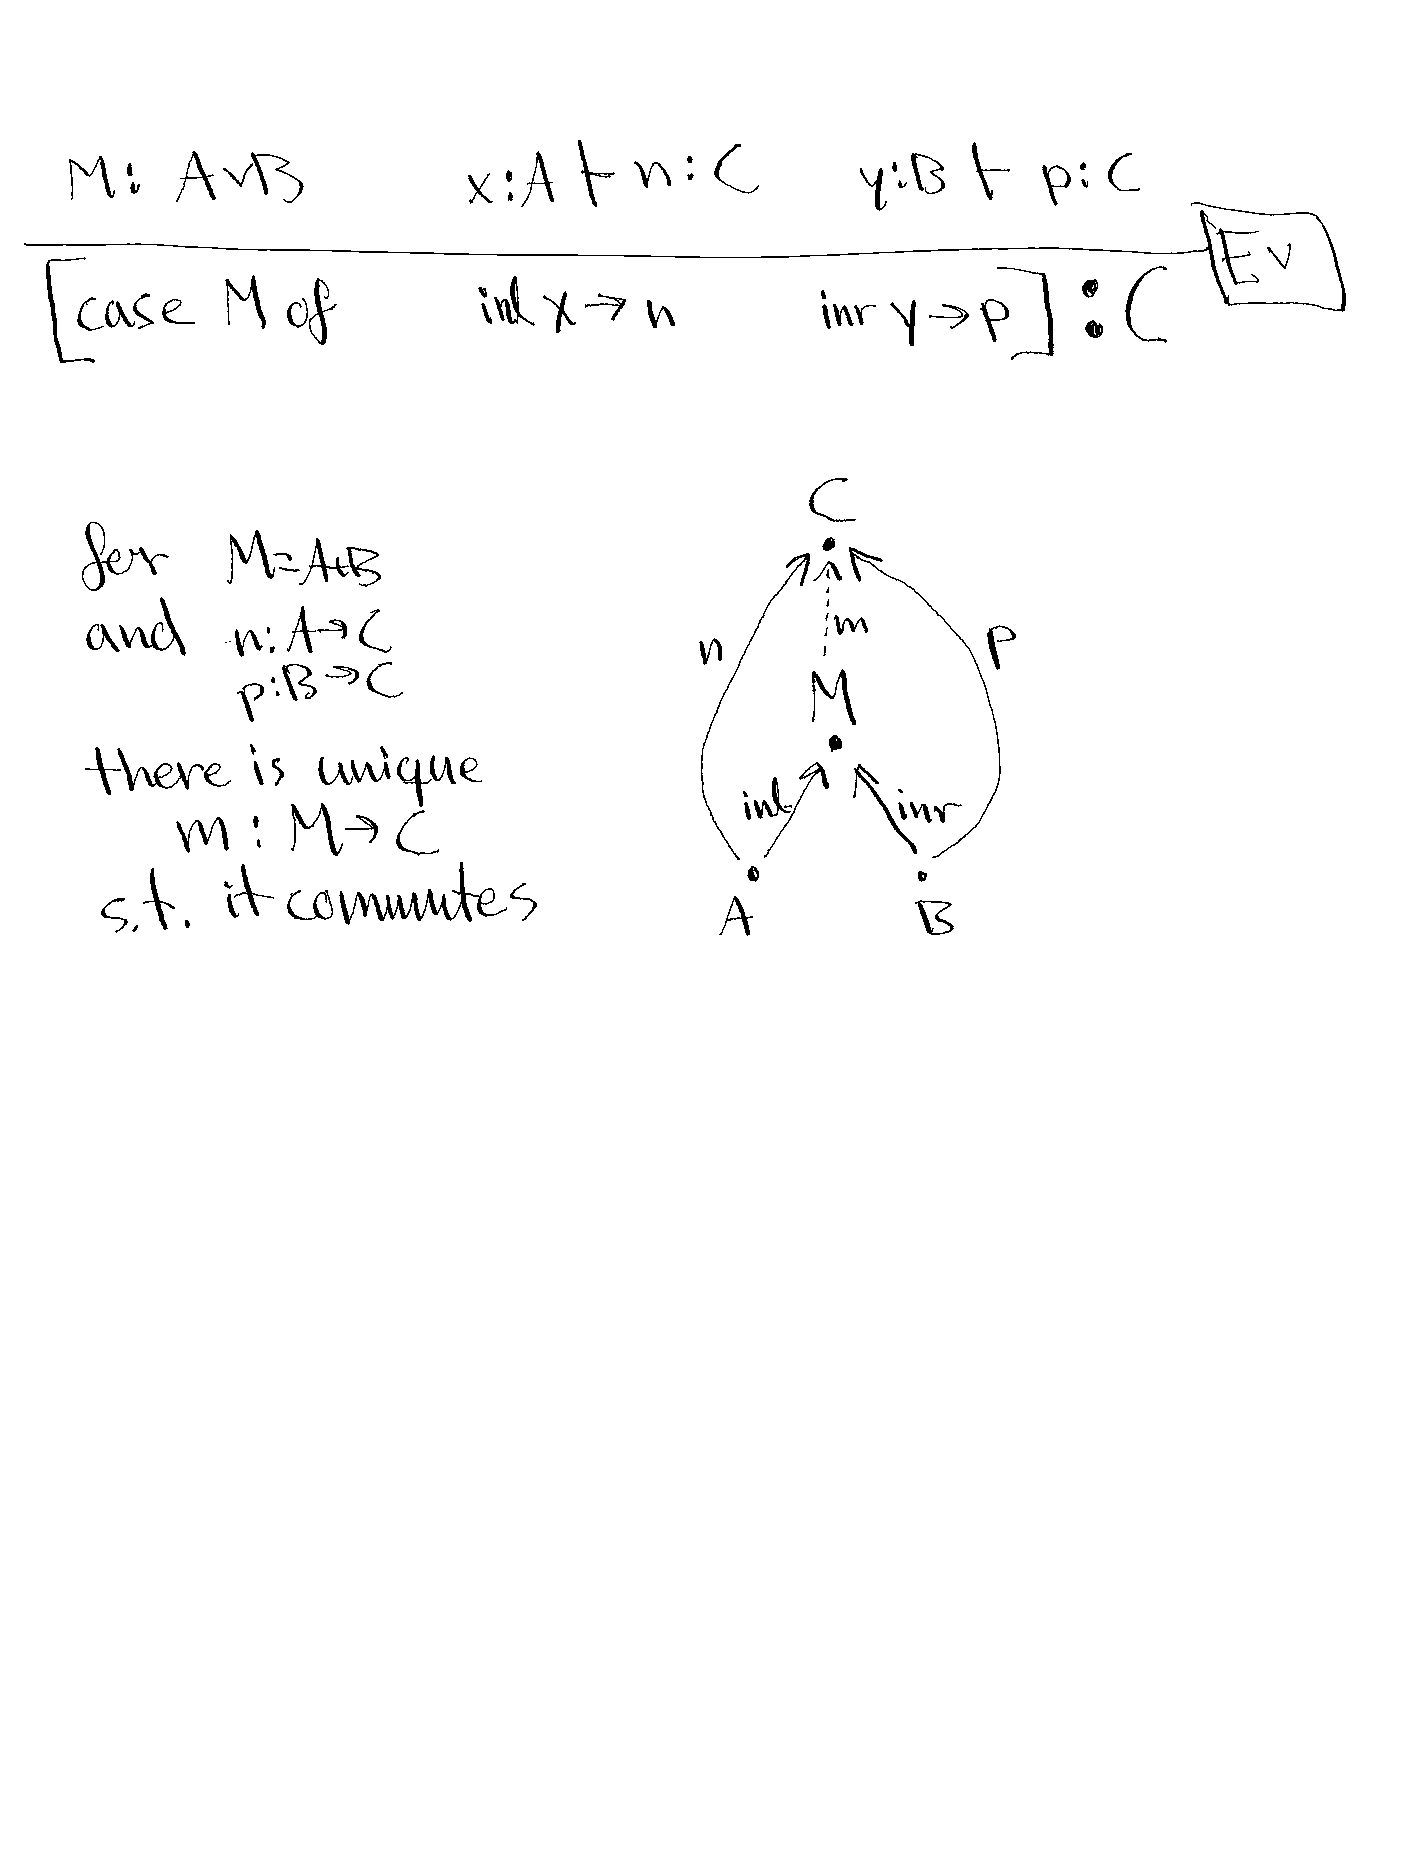 M: A∨B x:A ⊢ n:C y:B ⊢ p:C
E∨
[case M of inl x→n inr y→p] : C
for M=A+B
and n: A→C
p:B→C
there is unique
m : M→C
s.t. it commutes
C
m
n p
M
inl inr
A B